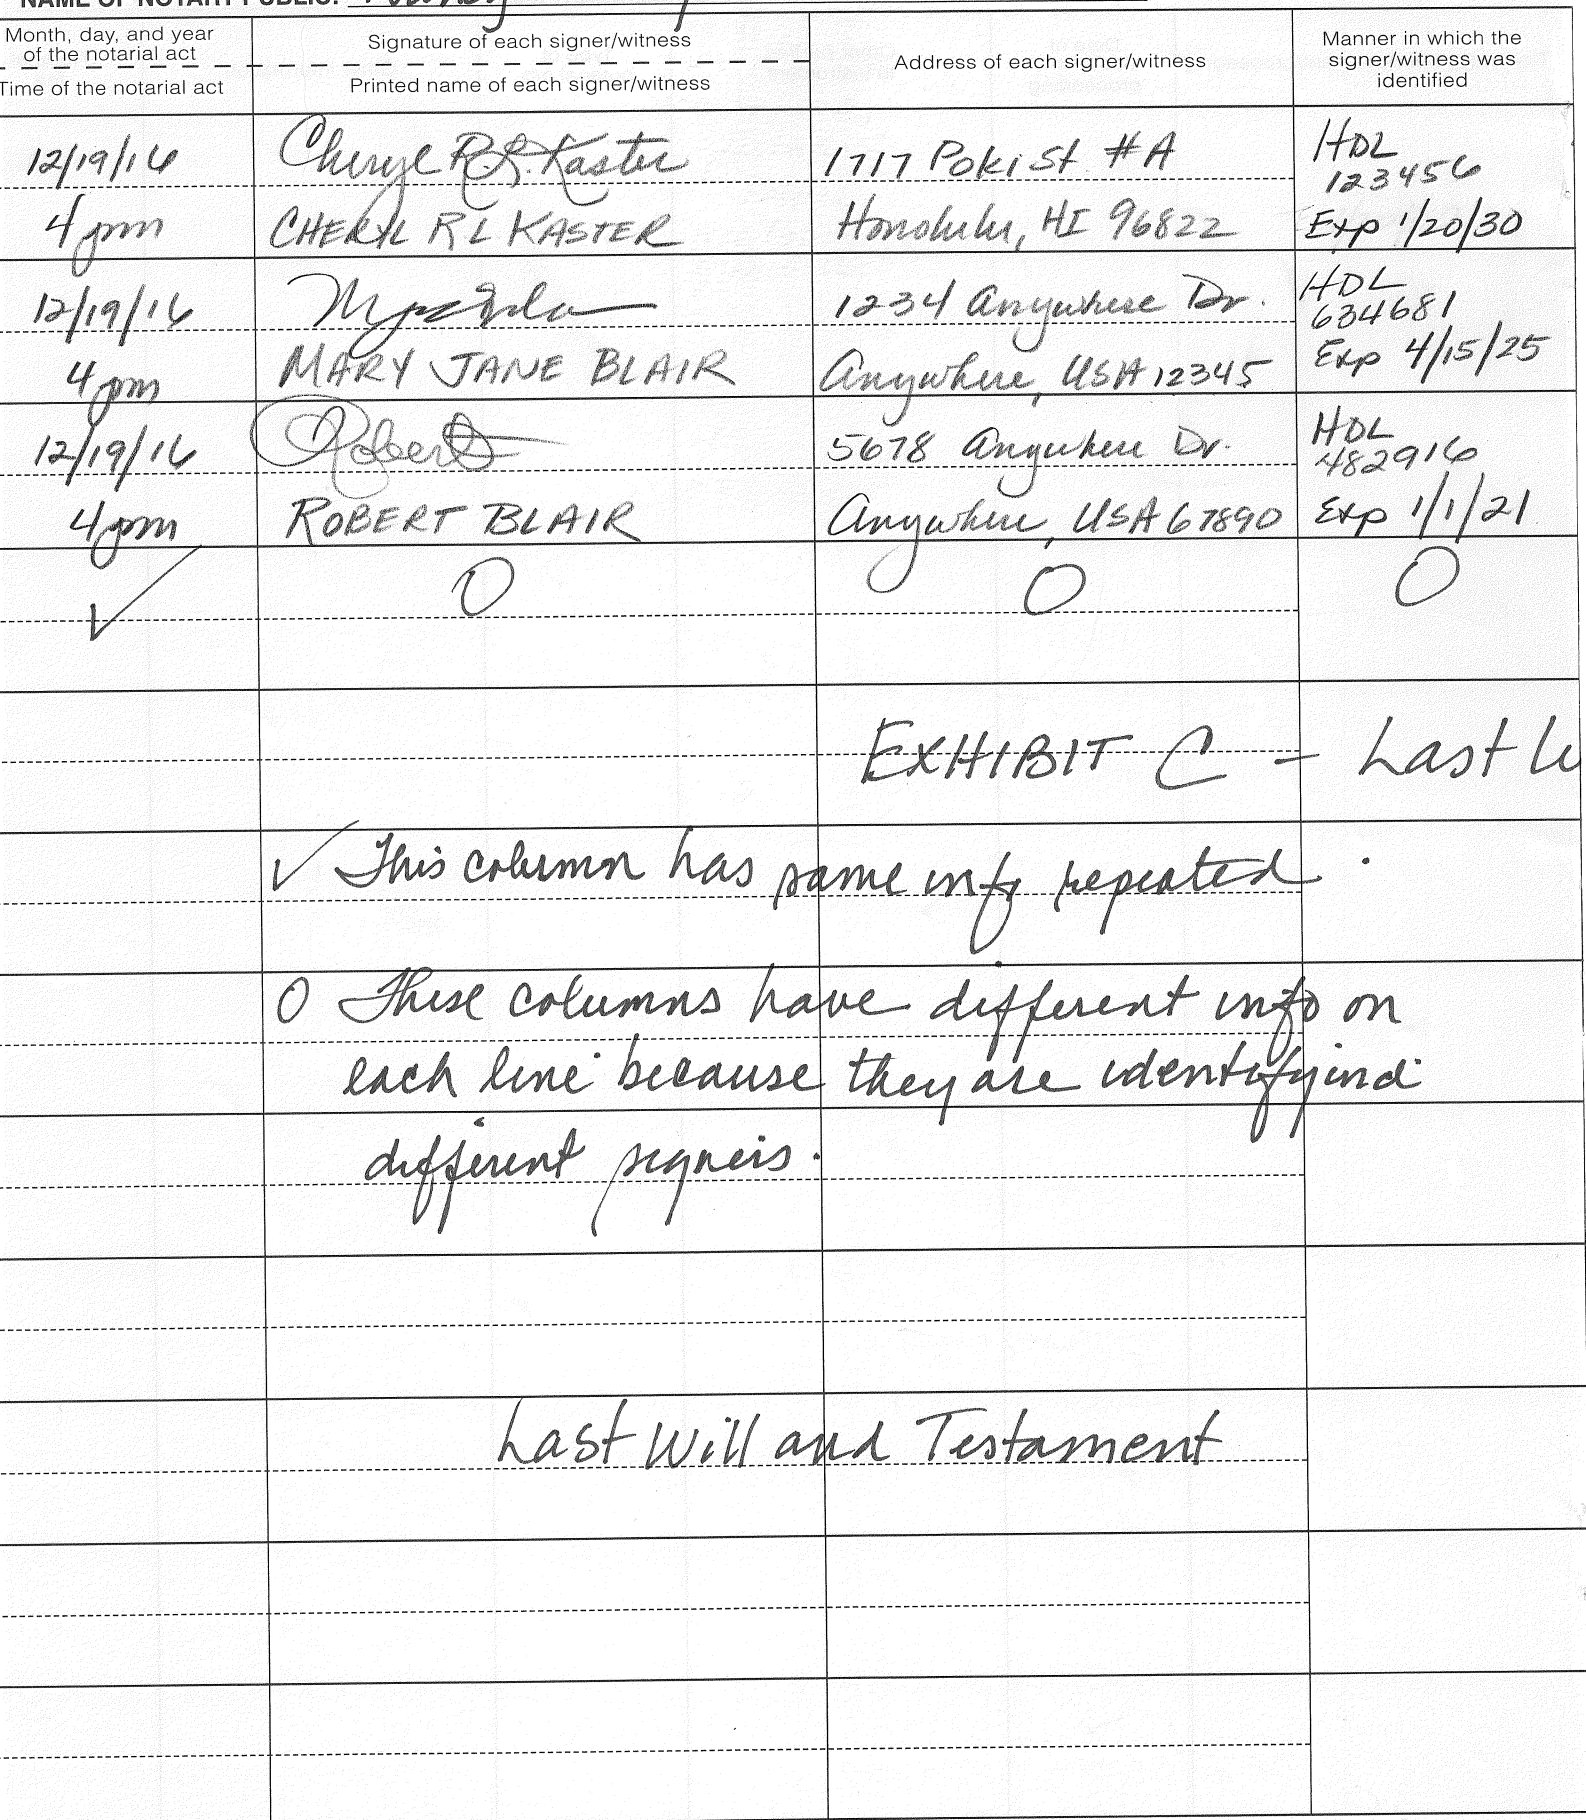 NAME OF NOTARY PUBLIC:
Month, day, and year
of the notarial act
Time of the notarial act
Signature of each signer/witness
Printed name of each signer/witness
Address of each signer/witness
Manner in which the
signer/witness was
identified
12/19/16
4pm
Cheryl R.L. Kaster
CHERYL R L KASTER
1717 Poki St #A
Honolulu, HI 96822
HDL
123456
Exp 1/20/30
12/19/16
4pm
MARY JANE BLAIR
1234 Anywhere Dr.
Anywhere, USA 12345
HDL
634681
Exp 4/15/25
12/19/16
4pm
Robert
ROBERT BLAIR
5678 Anywhere Dr.
Anywhere, USA 67890
HDL
482916
Exp 1/1/21
✓ O O O
EXHIBIT C - Last W
✓ This column has same info repeated.
O These columns have different info on
each line because they are identifyind
different signers.
Last Will and Testament